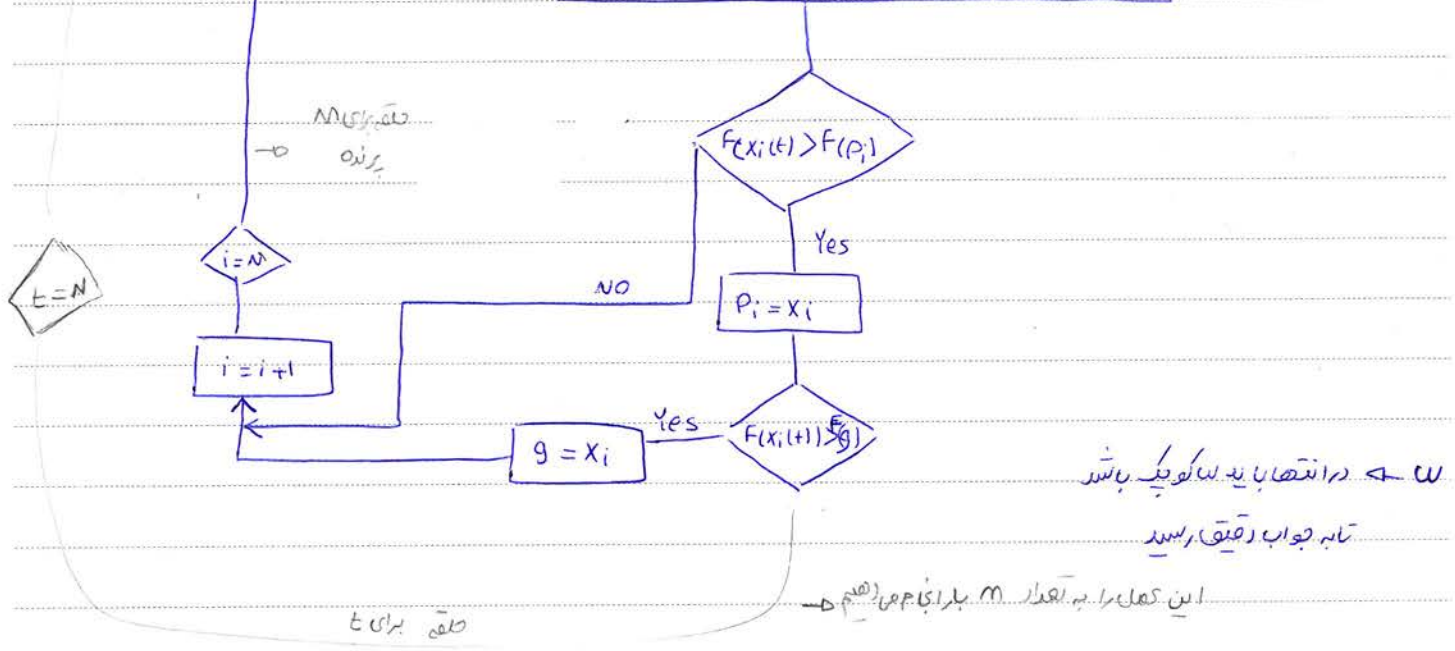 حلقه برای M
پرنده
F(xi(t) > F(Pi)
Yes
i = M
t = N
NO
Pi = xi
i = i+1
Yes
F(xi(t)) > F(g)
g = xi
ω → در انتها باید ω کوچک باشد
تا به جواب دقیق رسید
این عمل را به تعداد m بار انجام می دهیم
حلقه برای t